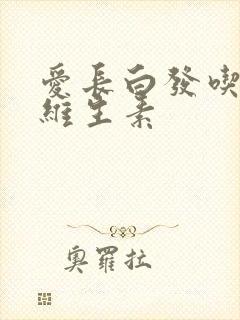 愛長白發喫
維生素
奧羅拉